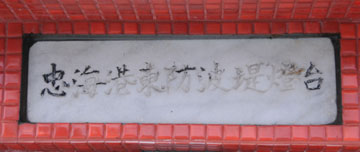 忠海港東防波堤燈台